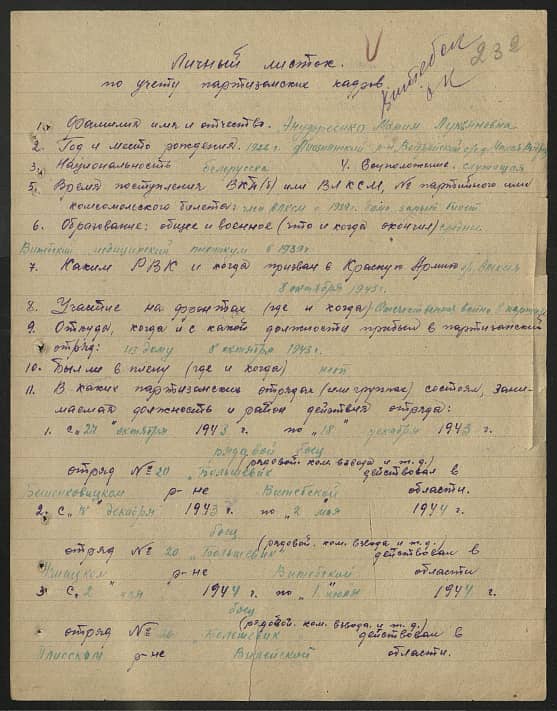 Витебск
ОК
232
Личный листок
по учету партизанских кадров.
1. Фамилия имя и отчество. Лукьяновна
2. Год и место рождения. 1922 г. р-н,
3. Национальность белорусска 4. Соцположение. служащая
5. Время поступления ВКП(б) или ВЛКСМ, № партийного или
комсомольского билета: член ВЛКСМ с 1939г.
6. Образование: общее и военное (что и когда окончил) среднее
Витебский медицинский техникум в 1939г
7. Каким РВК и когда призван в Красную Армию
8 октября 1943г.
8. Участие на фронтах (где и когда) Отечественная война в
9. Откуда, когда и с какой должности прибыл в партизанский
отряд: из дому 8 октября 1943 г.
10. Был ли в плену (где и когда) нет
11. В каких партизанских отрядах (или группах) состоял, зани-
маемая должность и район действия отряда:
1. с „27" октября 1943 г. по „18" декабря 1943 г.
рядовой боец
(рядовой. ком. взвода и т.д.)
отряд № 20 „Большевик" действовал в
Бешенковицком р-не Витебской области.
2. с „18" декабря 1943 г. по „2 мая 1944 г.
боец
(рядовой. ком. взвода и т.д.)
отряд № 20 „Большевик" действовал в
Ушацком р-не Витебской области
3. с „2 мая 1944 г. по „1 июня 1944 г.
боец
(рядовой. ком. взвода. и т.д.)
отряд № 20 „Большевик" действовал в
Плисском р-не Вилейской области.